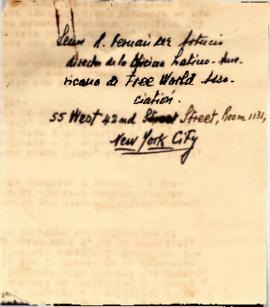 Señor A. Fernández Artucio
director de la Oficina Latino-Ame-
ricana de Free World Asso-
ciation.
55 West 42nd Street Street, Room 1131,
New York City